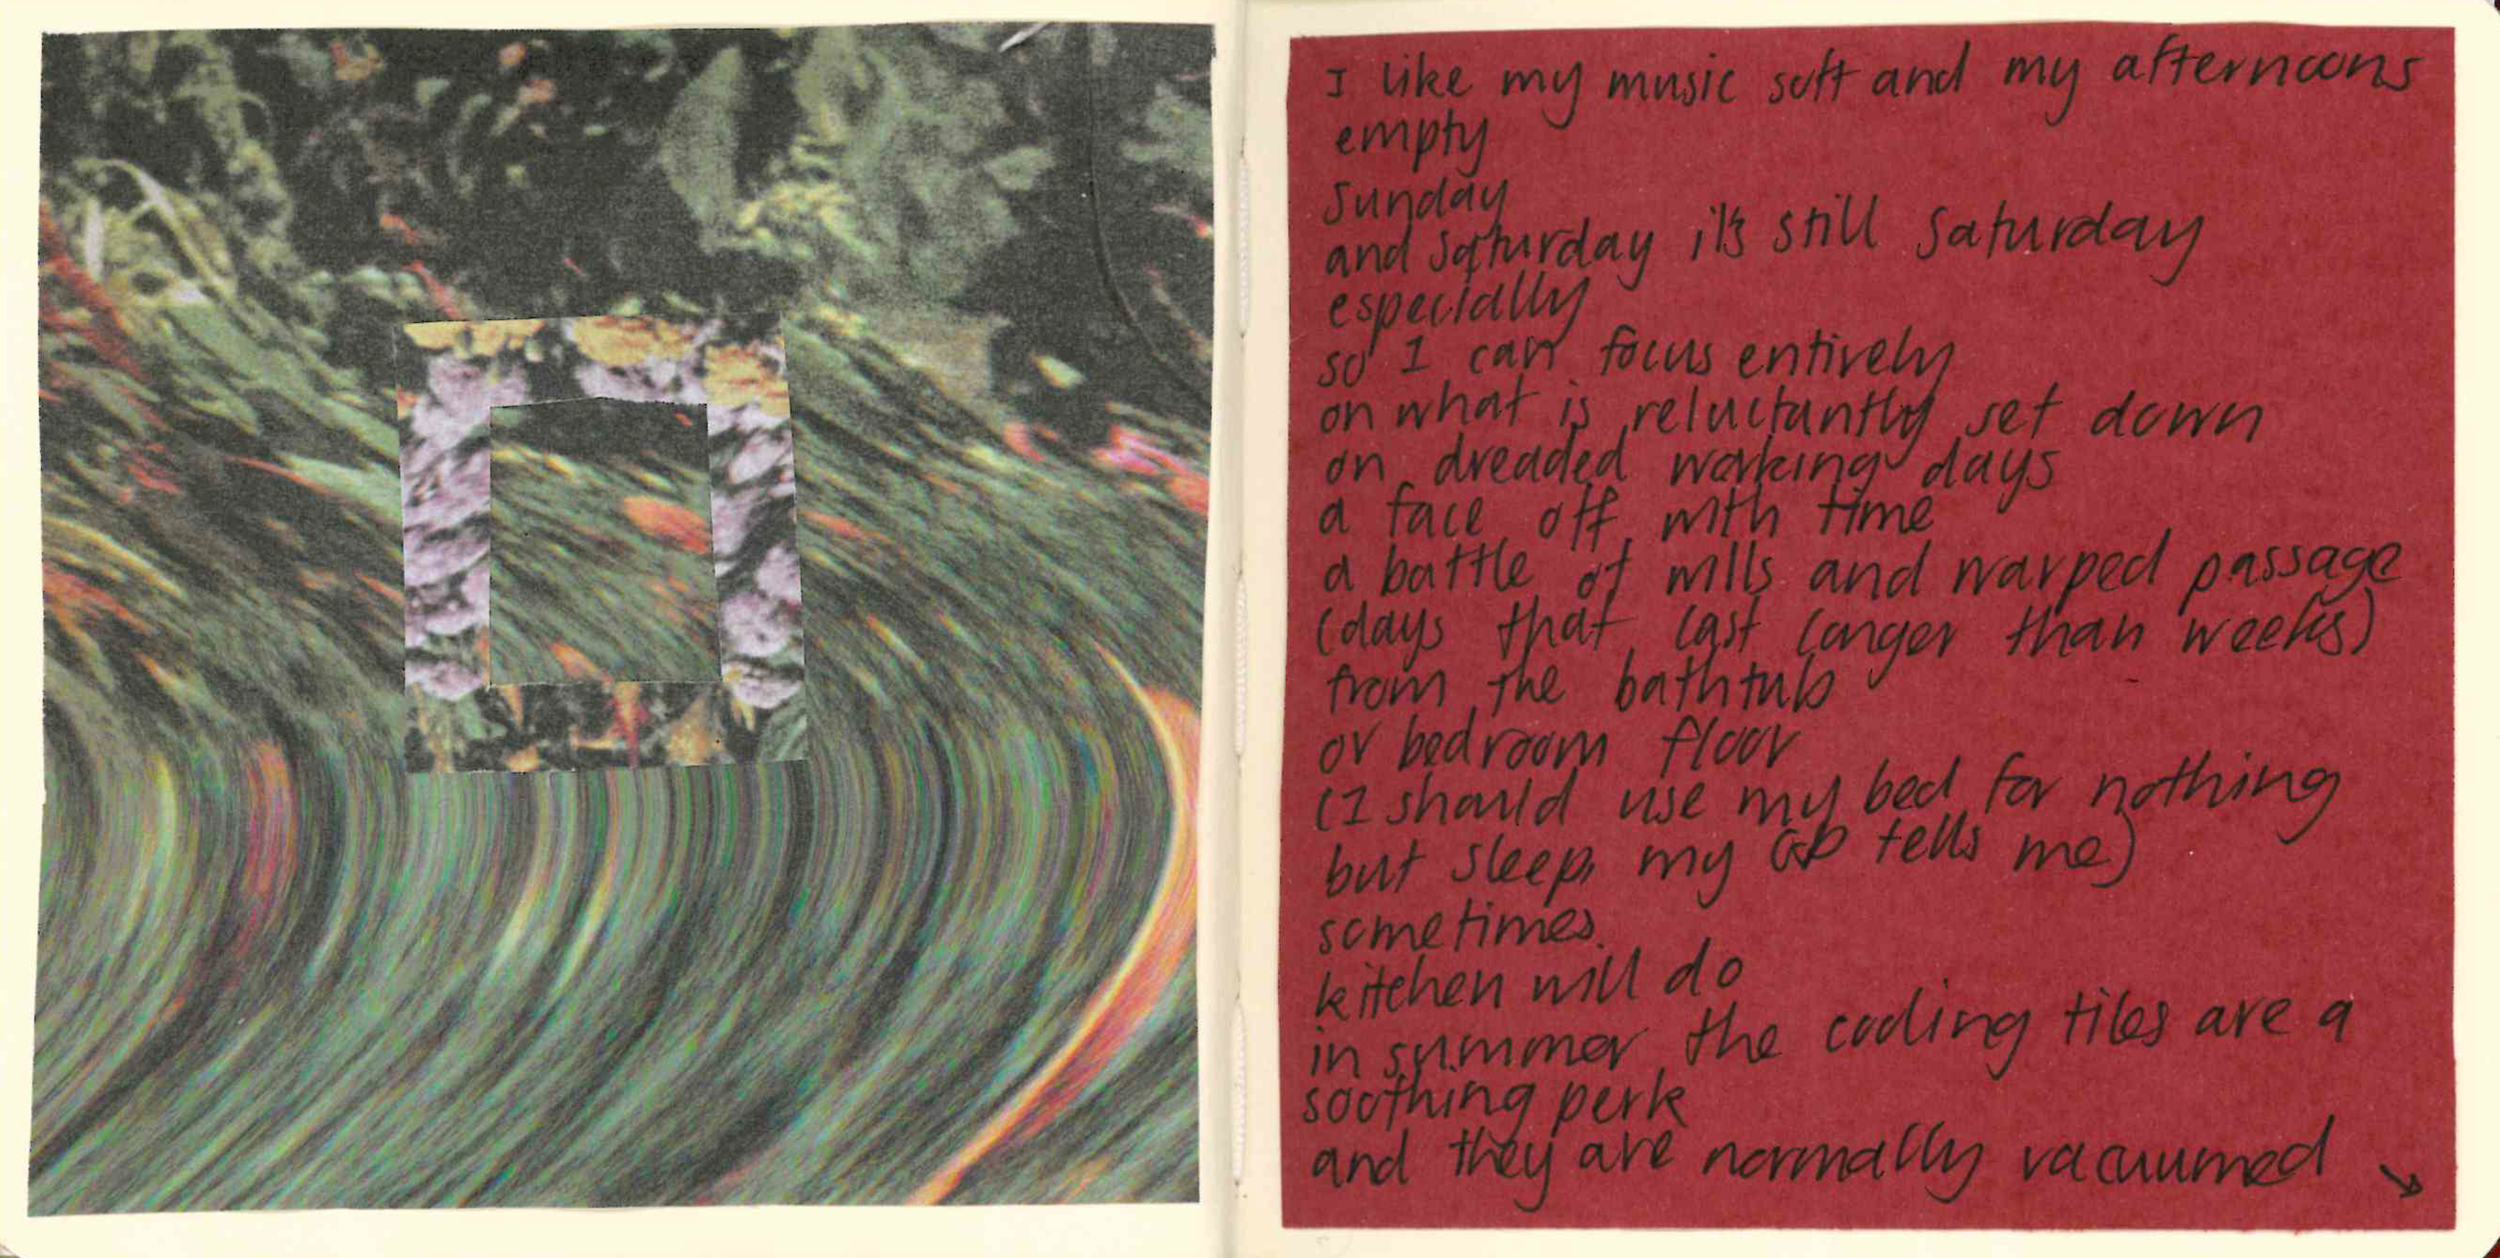 I like my music soft and my afternoons
empty
Sunday
and Saturday it's still Saturday
especially
so I can focus entirely
on what is reluctantly set down
on dreaded working days
a face off with time
a battle of wills and warped passage
(days that last longer than weeks)
from the bathtub
or bedroom floor
(I should use my bed for nothing
but sleep, my GP tells me)
sometimes.
kitchen will do
in summer the cooling tiles are a
soothing perk
and they are normally vacuumed